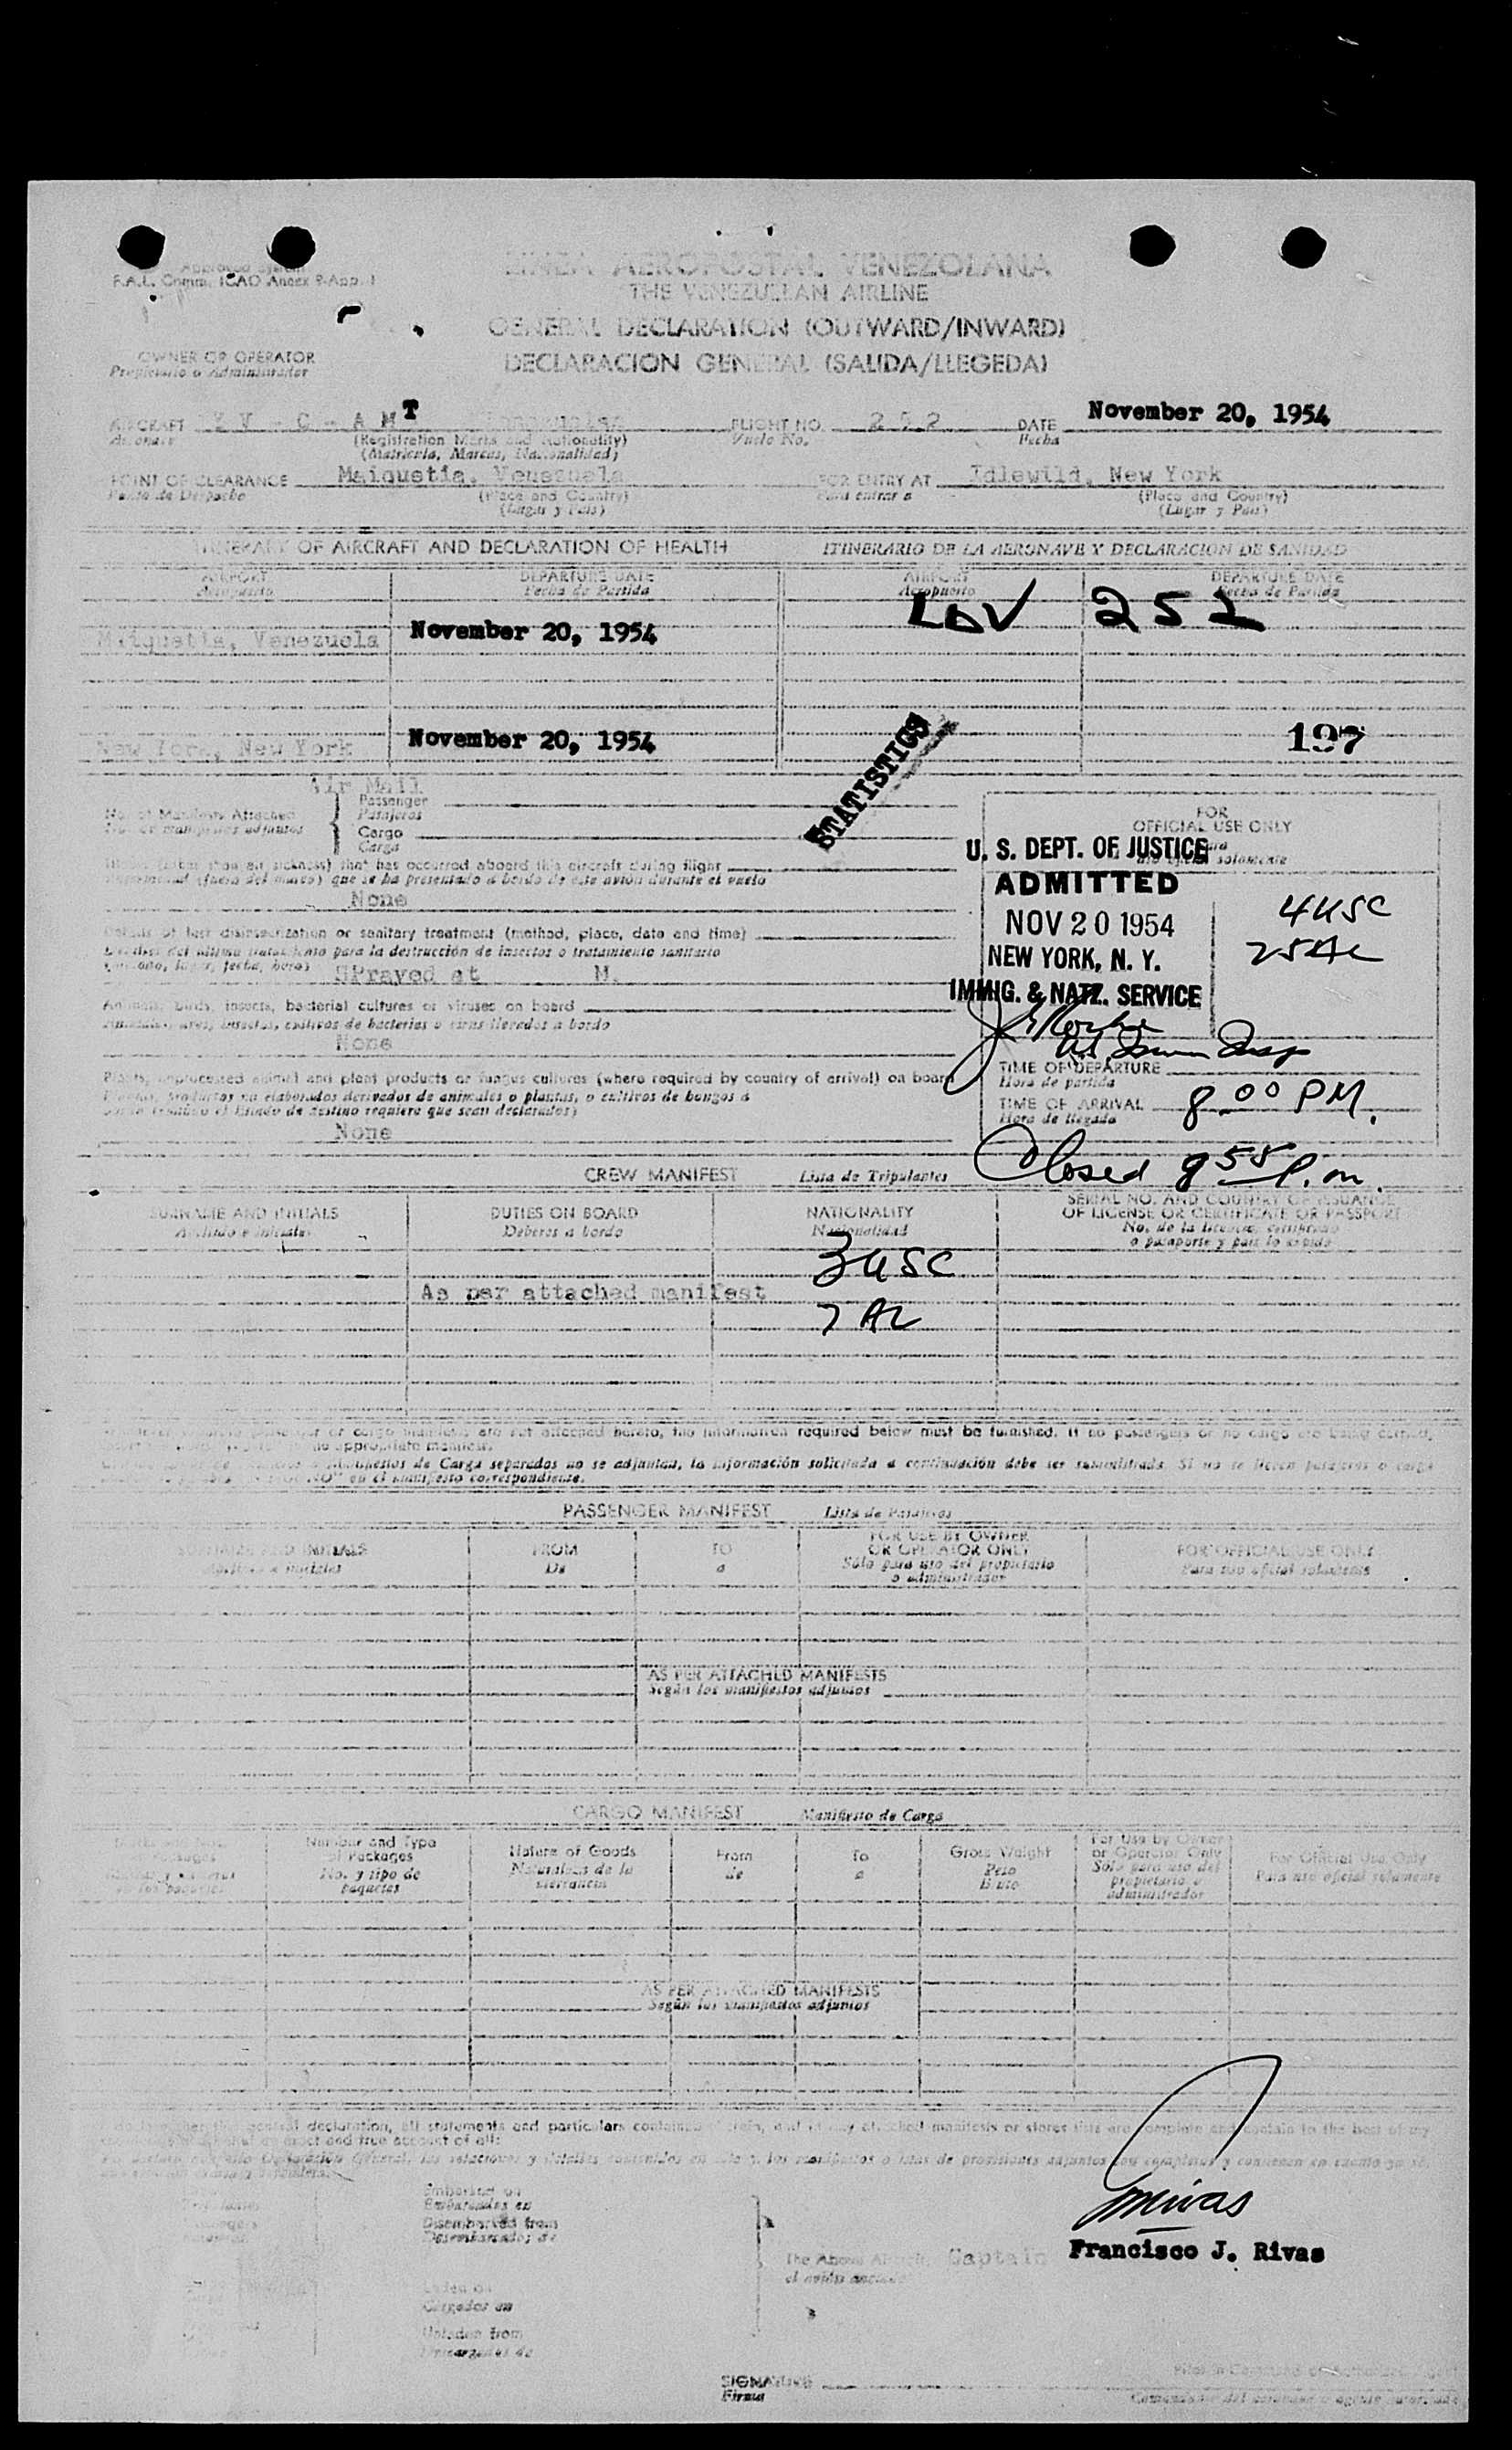 Approved System
F.A.L. Comm. ICAO Annex 9-App. 1
LINEA AEROPOSTAL VENEZOLANA
THE VENEZUELAN AIRLINE
GENERAL DECLARATION (OUTWARD/INWARD)
DECLARACION GENERAL (SALIDA/LLEGEDA)
OWNER OR OPERATOR
Propietario o Administrador
AIRCRAFT Y V - C - A M T FLIGHT NO. 252 DATE November 20, 1954
Aeronave (Registration Marks and Nationality) Vuelo No. Fecha
(Matricula, Marcas, Nacionalidad)
POINT OF CLEARANCE Maiquetia, Venezuela FOR ENTRY AT Idlewild, New York
Punto de Despacho (Place and Country) Para entrar a (Place and Country)
(Lugar y Pais) (Lugar y Pais)
ITINERARY OF AIRCRAFT AND DECLARATION OF HEALTH ITINERARIO DE LA AERONAVE Y DECLARACION DE SANIDAD
AIRPORT DEPARTURE DATE AIRPORT DEPARTURE DATE
Aeropuerto Fecha de Partida Aeropuerto Fecha de Partida
LAV 252
Maiquetia, Venezuela November 20, 1954
New York, New York November 20, 1954
197
STATISTICS
Air Mail
No. of Manifests Attached Passenger
No. de manifiestos adjuntos Pasajeros
Cargo
Carga
FOR
OFFICIAL USE ONLY
Para
uso oficial solamente
U. S. DEPT. OF JUSTICE
ADMITTED
NOV 20 1954
NEW YORK, N. Y.
IMMIG. & NATZ. SERVICE
4 USC
25 AL
Illness (other than air sickness) that has occurred aboard this aircraft during flight
(fuera del mareo) que se ha presentado a bordo de este avión durante el vuelo
None
Details of last disinsectization or sanitary treatment (method, place, date and time)
Detalles del último tratamiento para la destrucción de insectos o tratamiento sanitario
(método, lugar, fecha, hora)
SPrayed at M.
Animals, birds, insects, bacterial cultures or viruses on board
Animales, aves, insectos, cultivos de bacterias o virus llevados a bordo
None
Plants, unprocessed animal and plant products or fungus cultures (where required by country of arrival) on board
Plantas, productos no elaborados derivados de animales o plantas, o cultivos de hongos a
bordo (cuando el Estado de destino requiere que sean declarados)
None
TIME OF DEPARTURE
Hora de partida
TIME OF ARRIVAL 8:00 PM.
Hora de llegada
Closed 8 55 P.m.
CREW MANIFEST Lista de Tripulantes
SURNAME AND INITIALS DUTIES ON BOARD NATIONALITY SERIAL NO. AND COUNTRY OF ISSUANCE
OF LICENSE OR CERTIFICATE OR PASSPORT
Apellido e iniciales Deberes a bordo Nacionalidad No. de la licencia, certificado
o pasaporte y pais lo expido
3 USC
As per attached manifest
7 AL
or cargo manifests are not attached hereto, the information required below must be furnished. If no passengers or no cargo are being carried,
appropriate manifest.
Manifiestos de Carga separados no se adjuntan, la información solicitada a continuación debe ser suministrada. Si no se llevan pasajeros o carga
"NO" en el manifiesto correspondiente.
PASSENGER MANIFEST Lista de Pasajeros
SURNAME AND INITIALS FROM TO FOR USE BY OWNER
OR OPERATOR ONLY FOR OFFICIAL USE ONLY
Apellido e iniciales De a Sólo para uso del propietario
o administrador Para uso oficial solamente
AS PER ATTACHED MANIFESTS
Según los manifiestos adjuntos
CARGO MANIFEST Manifiesto de Carga
Number and Type
of Packages Nature of Goods From To Gross Weight For Use by Owner
or Operator Only For Official Use Only
No. y tipo de
paquetes Naturaleza de la
mercancia de a Peso
Bruto Sólo para uso del
propietario o
administrador Para uso oficial solamente
AS PER ATTACHED MANIFESTS
Según los manifiestos adjuntos
general declaration, all statements and particulars contained herein, and in any attached manifests or stores lists are complete and contain to the best of my
exact and true account of all:
Embarked on
Embarcados en
Disembarked from
Desembarcados de
Laden on
Cargados en
Unladen from
Descargados de
The Above Aircraft Captain Francisco J. Rivas
el avión
SIGNATURE
Firma
Pilot in Command or Authorized Agent
Comandante del aeronave o agente autorizado